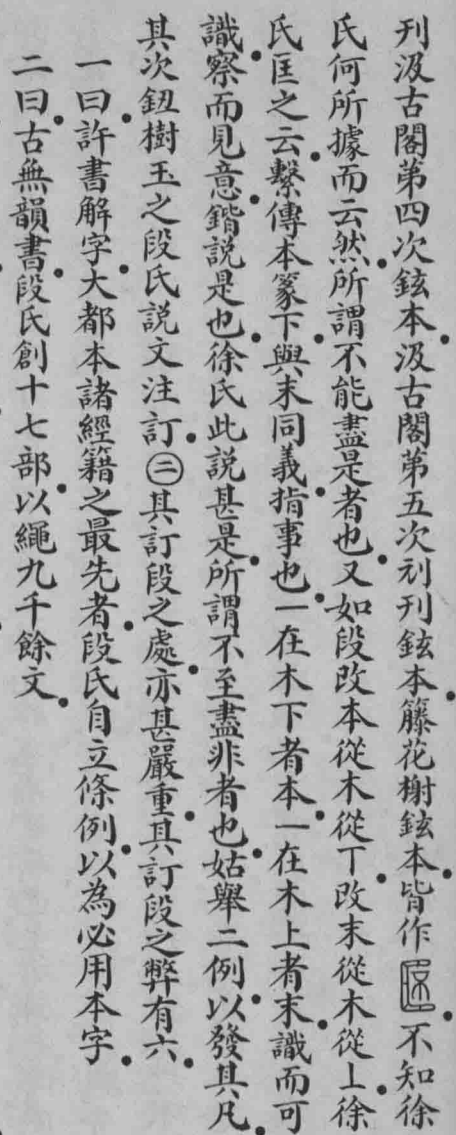 刊汲古閣第四次鉉本。汲古閣第五次剜刊鉉本。籐花榭鉉本。皆作。不知徐
氏何所據而云然。所謂不能盡是者也。又如段改本從木從丅。改末從木從丄。徐
氏匡之云。繫傳本篆下。與末同義。指事也。一在木下者本。一在木上者末。識而可
識。察而見意。鍇說是也。徐氏此說甚是。所謂不至盡非者也。姑舉二例。以發其凡。
其次鈕樹玉之段氏說文注訂。㊁其訂段之處。亦甚嚴重。其訂段之弊有六。
一曰。許書解字。大都本諸經籍之最先者。段氏自立條例。以為必用本字。
二曰。古無韻書。段氏創十七部。以繩九千餘文。